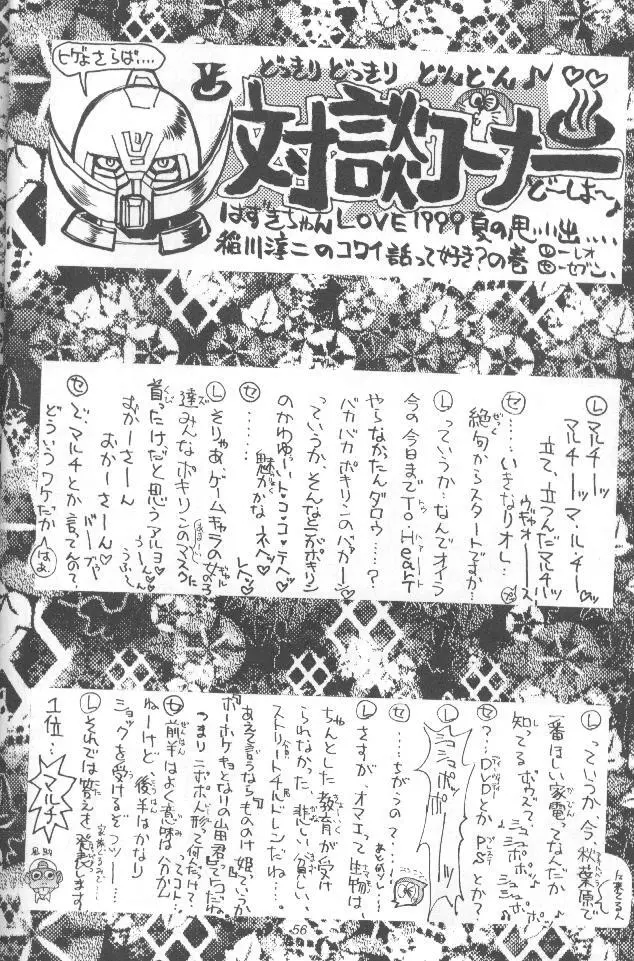 ヒゲよさらば…
どっきり どっきり どんどん♪♡♡
対談コーナー
どーしよー♪
はずきちゃんLOVE1999夏の思い出……
稲川淳二のコワイ話って好き?の巻 Ⓛーレオ
セーセブン
Ⓛ マルチーッ
マルチーッマ・ル・チーッ♡
立て、立つんだマルチッ
ウギャォーース
セ……いきなりオレ…
絶句からスタートですか…
Ⓛっていうか、なんでオイラ
今の今日までTo Heart
やらなかったんダロウ……?
バカバカポキリンのバカーン♡
っていうか、そんなとこがポキリン
のかわゆーいト・コ・ロ・テヘ♡
セ…… 魅かかな、ネヘ♡
Ⓛそりゃあ、ゲームキャラの女の子
達みんなポキリンのマスクに
首ったけだと思うアルヨ♡
おかーさーん
おかーさーん♡
セで、マルチとか言ってんの?、
どういうワケだか はぁ
Ⓛっていうか今、秋葉原で
一番ほしい家電ってなんだか
知ってるボウズ?
セ?…DVDとかPSとか?
Ⓛ
セ……ちがうの?……
Ⓛさすが、オマエって生物は、
ちゃんとした教育が受け
られなかった、悲しい貧しい
ストリートチルドレンだね…。
あえて言うならもののけ姫っていうか
ホーホケキョとなりの山田君でつだね。
つまりニポポ人形って何んだっけ?
ってコト…
セ前半はよく意味は分かん
ねーけど 後半はかなり
ショックを受けるぞつッー…
Ⓛそれでは答えを発表します
1位… マルチ
56